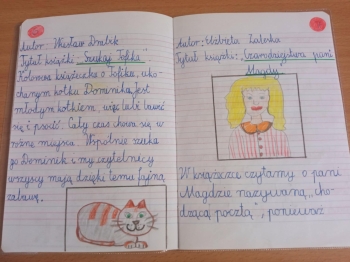 Autor: Wiesław Drabik
Tytuł książki: „Szukaj Tofika”
Kolorowa książeczka o Tofiku, uko-
chanym kotku Dominika. Jest
młodym kotkiem, więc lubi bawić
się i psocić. Cały czas chowa się w
różne miejsca. Wspólnie szuka
go Dominik i my czytelnicy
wszyscy mają dzięki temu fajną
zabawę.
Autor: Elżbieta Zaleska
Tytuł książki: „Czarodziejstwa pani
Magdy”
W książeczce czytamy o pani
Magdzie nazywaną „cho-
dzącą pocztą”, ponieważ